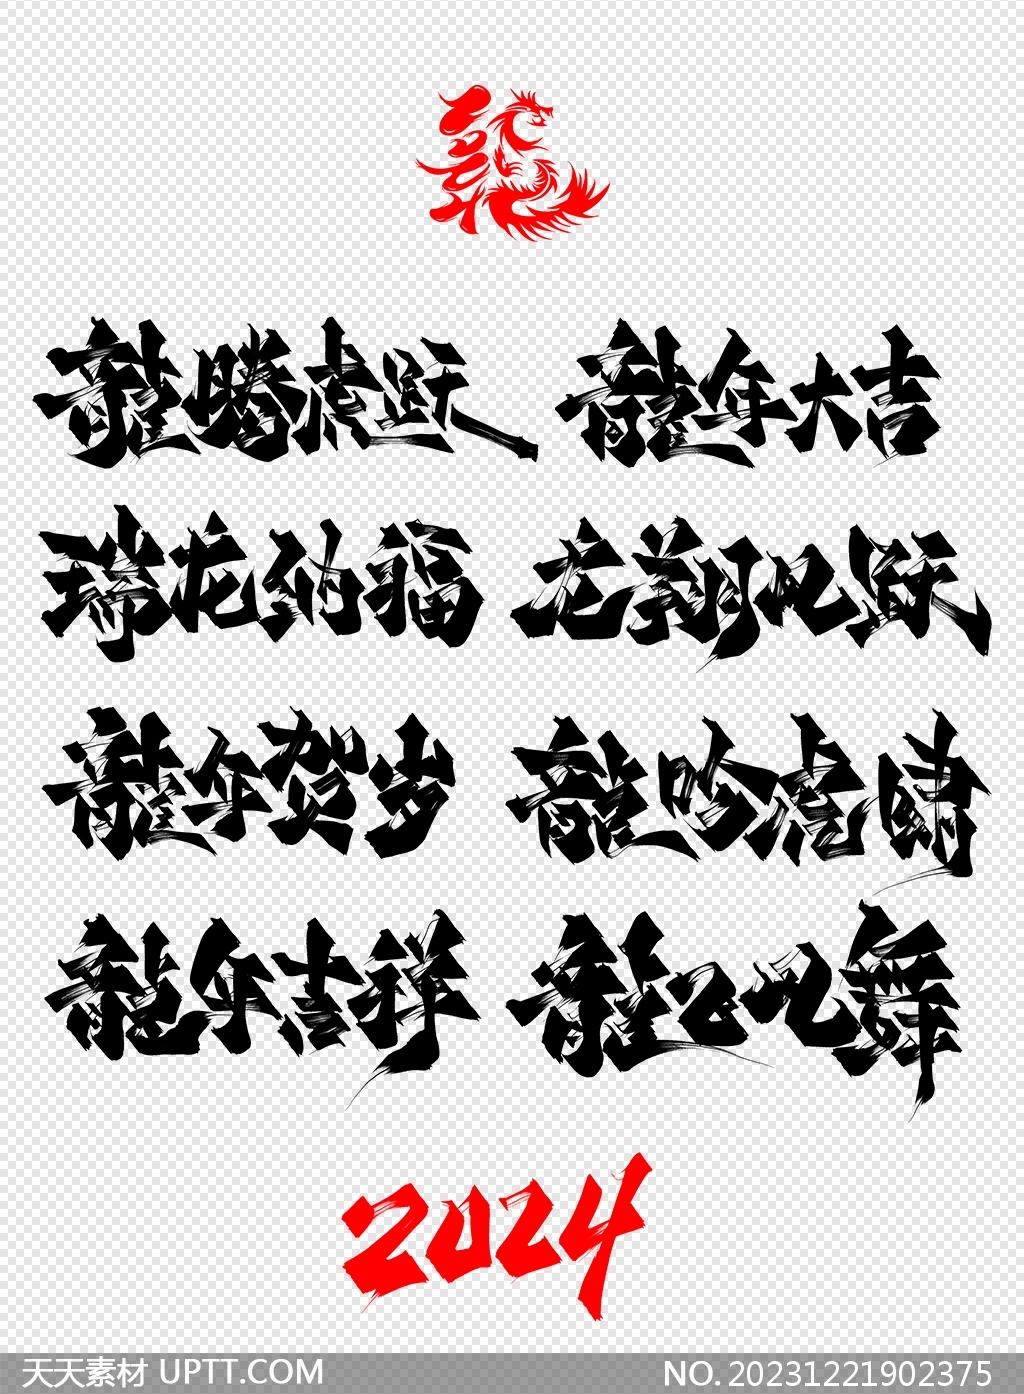 龍
龍腾虎跃 龍年大吉
瑞龙纳福 龙翔凤跃
龍年贺岁 龍吟虎啸
龍年吉祥 龍飞凤舞
2024
天天素材 UPTT.COM NO.20231221902375